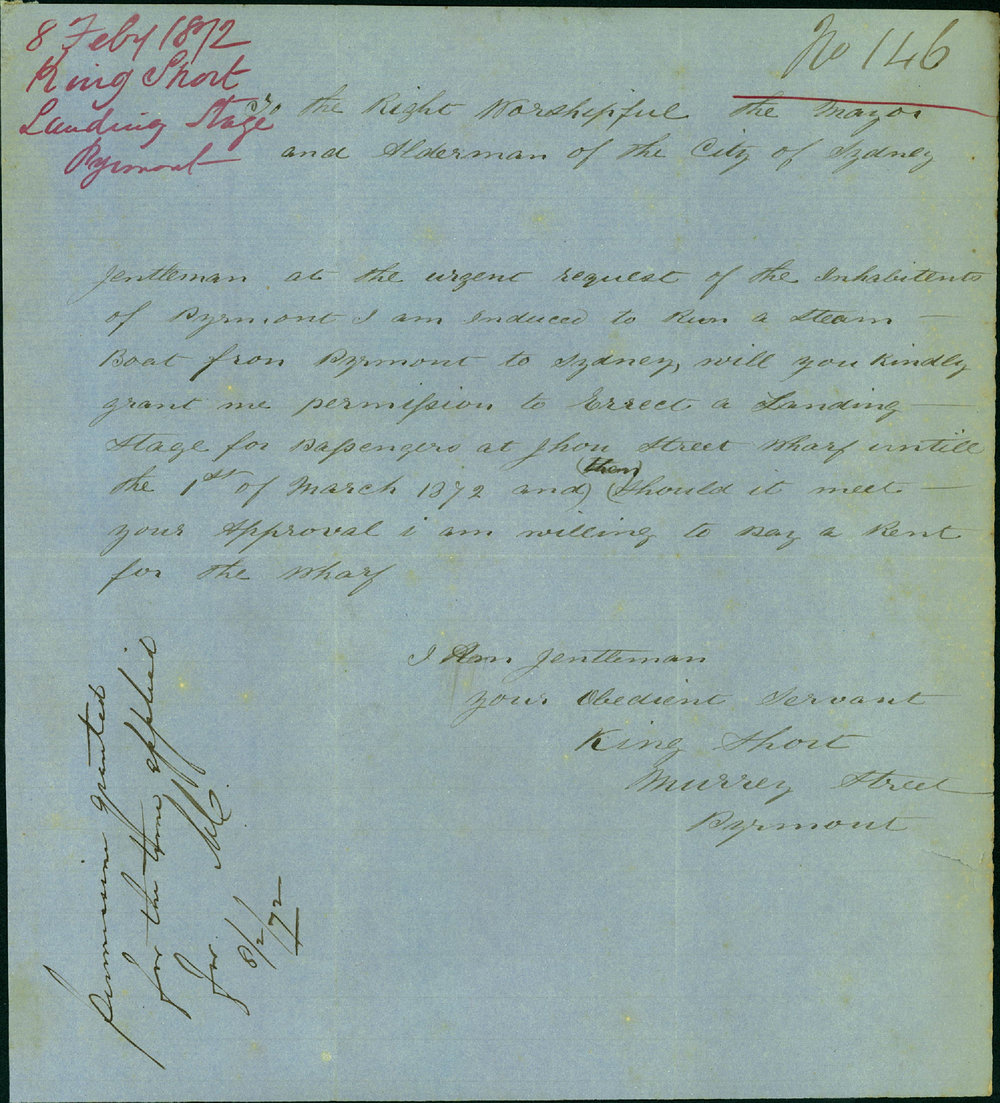 8 Feby 1872
King Short
Landing Stage
Pyrmont
No 146
To the Right Worshipful the Mayor
and Alderman of the City of Sydney
Jentleman at the urgent request of the Inhabitents
of Pyrmont I am induced to Run a Steam
Boat fron Pyrmont to Sydney, will you Kindly
grant me permission to Errect a Landing
Stage for passengers at Street Wharf untill
the 1st of March 1872 and (then) should it meet
your Approval i am willing to pay a Rent
for the Wharf
I Am Jentleman
your Obedient Servant
King Short
Murrey Street
Pyrmont
Permission granted
for the time applied
for
8/2/72